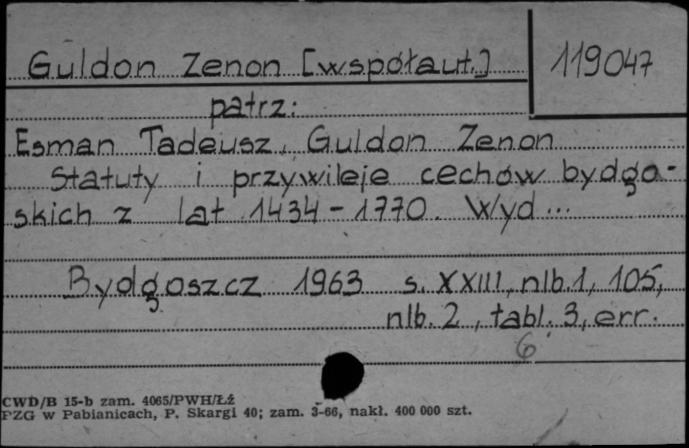 Guldon Zenon [współaut.] 119047
patrz:
Esman Tadeusz, Guldon Zenon
Statuty i przywileje cechów bydgo-
skich z lat 1434-1770. Wyd...
Bydgoszcz 1963 s. XXIII, nlb.1, 105,
nlb. 2, tabl. 3, err.
6
CWD/B 15-b zam. 4065/PWH/Łź
PZG w Pabianicach, P. Skargi 40; zam. 3-66, nakł. 400 000 szt.